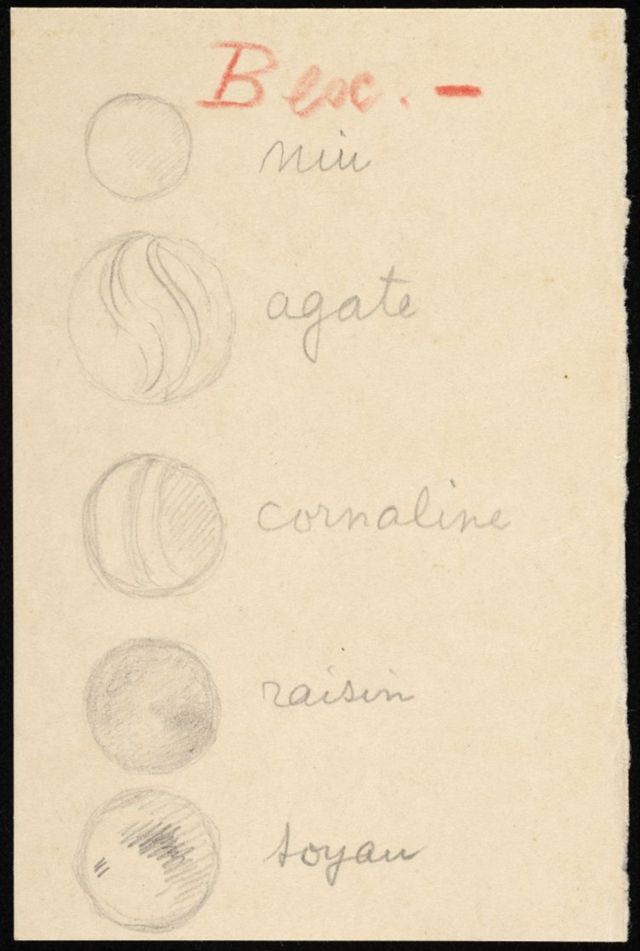 Bex. -
niu
agate
cornaline
raisin
toyau